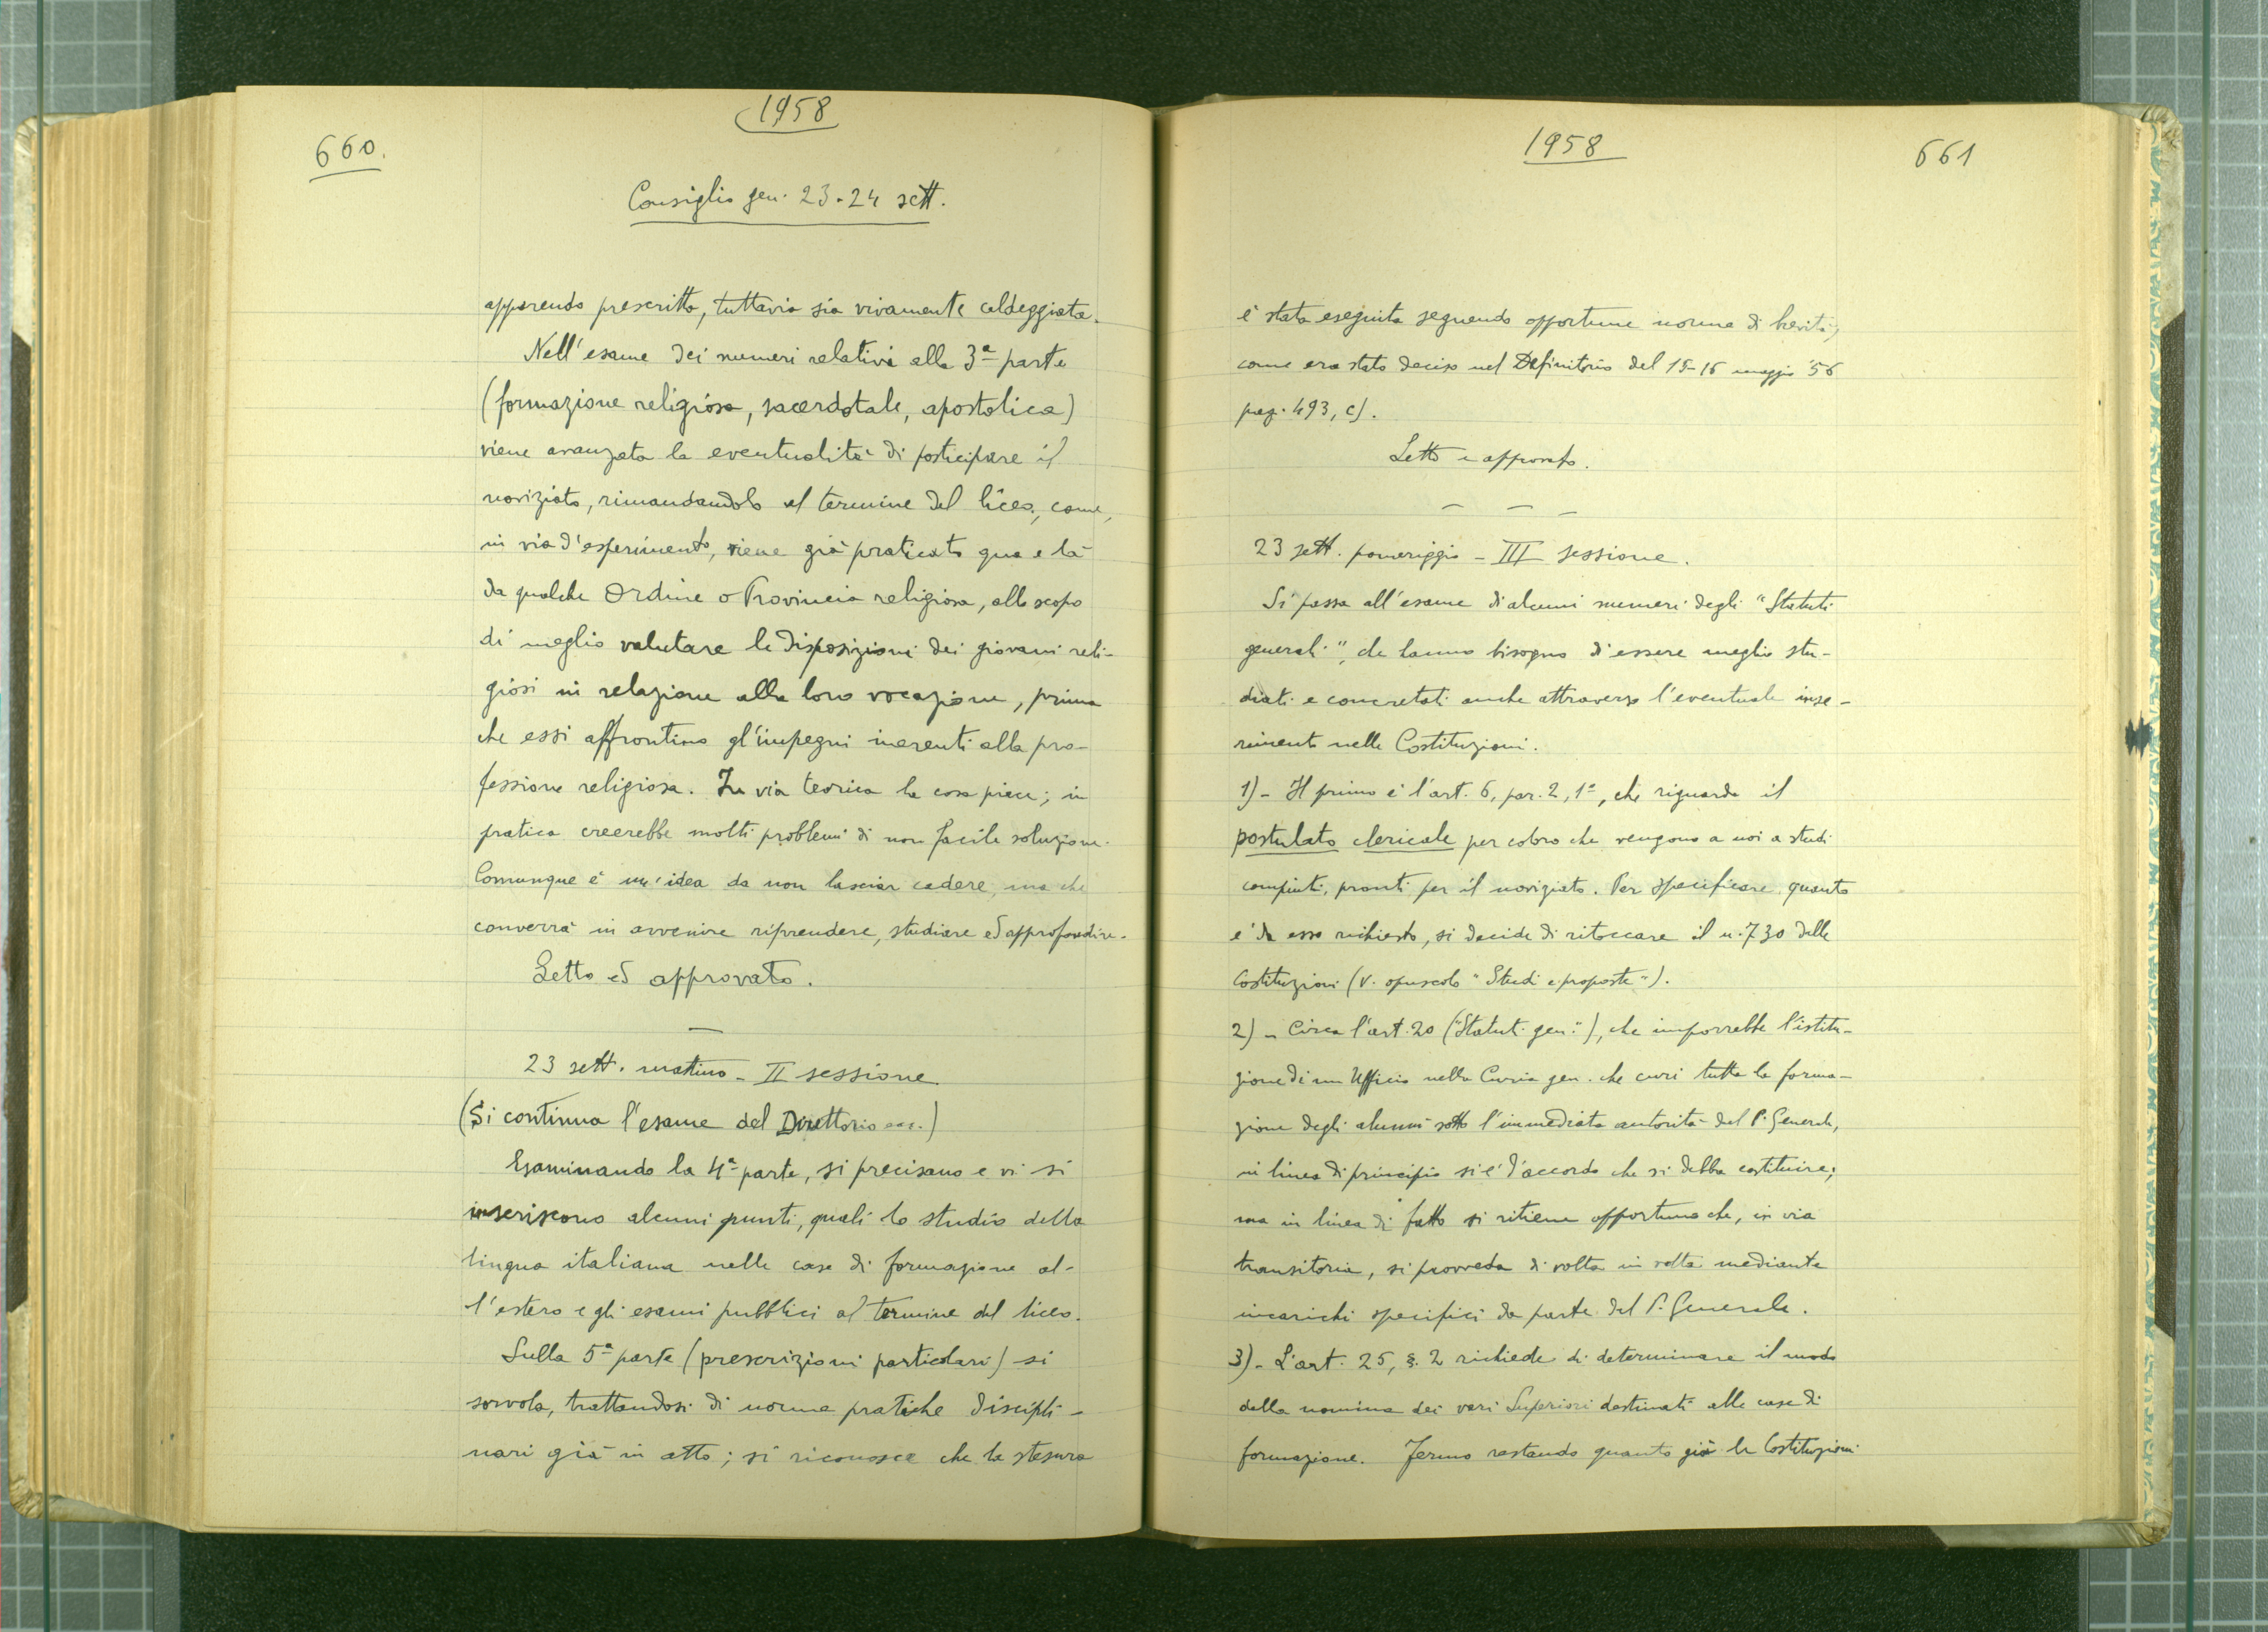 1958
660.
Consiglio gen. 23-24 sett.
apparendo prescritta, tuttavia sia vivamente caldeggiata.
Nell'esame dei numeri relativi alla 3ª parte
(formazione religiosa, sacerdotale, apostolica)
viene avanzata la eventualità di posticipare il
noviziato, rimandandolo al termine del liceo, come,
in via d'esperimento, viene già praticato qua e là
da qualche Ordine o Provincia religiosa, allo scopo
di meglio valutare le disposizioni dei giovani reli-
giosi in relazione alla loro vocazione, prima
che essi affrontino gl'impegni inerenti alla pro-
fessione religiosa. In via teorica la cosa piace; in
pratica creerebbe molti problemi di non facile soluzione.
Comunque è un'idea da non lasciar cadere, ma che
converrà in avvenire riprendere, studiare ed approfondire.
Letto ed approvato.
23 sett. mattino - II sessione
(Si continua l'esame del Direttorio ecc.)
Esaminando la 4ª parte, si precisano e vi si
inseriscono alcuni punti, quali lo studio della
lingua italiana nelle case di formazione al-
l'estero e gli esami pubblici al termine del liceo.
Sulla 5ª parte (prescrizioni particolari) si
sorvola, trattandosi di norme pratiche discipli-
nari già in atto; si riconosce che la stesura
1958
661
è stata eseguita seguendo opportune norme di brevità,
come era stato deciso nel Definitorio del 15-16 maggio '56
pag. 493, c).
Letto e approvato.
23 sett. pomeriggio - III sessione.
Si passa all'esame di alcuni numeri degli "Statuti
generali", che hanno bisogno di essere meglio stu-
diati e concretati anche attraverso l'eventuale inse-
rimento nelle Costituzioni.
1) - Il primo è l'art. 6, par. 2, 1º, che riguarda il
postulato clericale per coloro che vengono a noi a studi
compiuti, pronti per il noviziato. Per specificare quanto
è da esso richiesto, si decide di ritoccare il n. 730 delle
Costituzioni (v. opuscolo "Studi e proposte").
2) - Circa l'art. 20 ("Statuti gen."), che imporrebbe l'istitu-
zione di un Ufficio nella Curia gen. che curi tutta la forma-
zione degli alunni sotto l'immediata autorità del P. Generale,
in linea di principio si è d'accordo che si debba costituire;
ma in linea di fatto si ritiene opportuno che, in via
transitoria, si provveda di volta in volta mediante
incarichi specifici da parte del P. Generale.
3) - L'art. 25, §. 2 richiede di determinare il modo
della nomina dei vari Superiori destinati alle case di
formazione. Fermo restando quanto già le Costituzioni